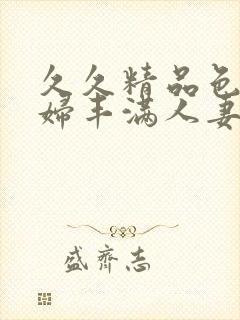 久久精品色
婦丰满人妻
盛齊志